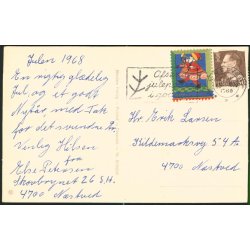 Julen 1968
En rigtig glædelig
Jul, og et godt
Nytår med Tak
for det svundne År.
Venlig Hilsen
fra
Else Petersen
Skovbrynet 26 S.H.
4700 Næstved
Hr. Erik Larsen
Kildemarksvej 54 A
4700 Næstved